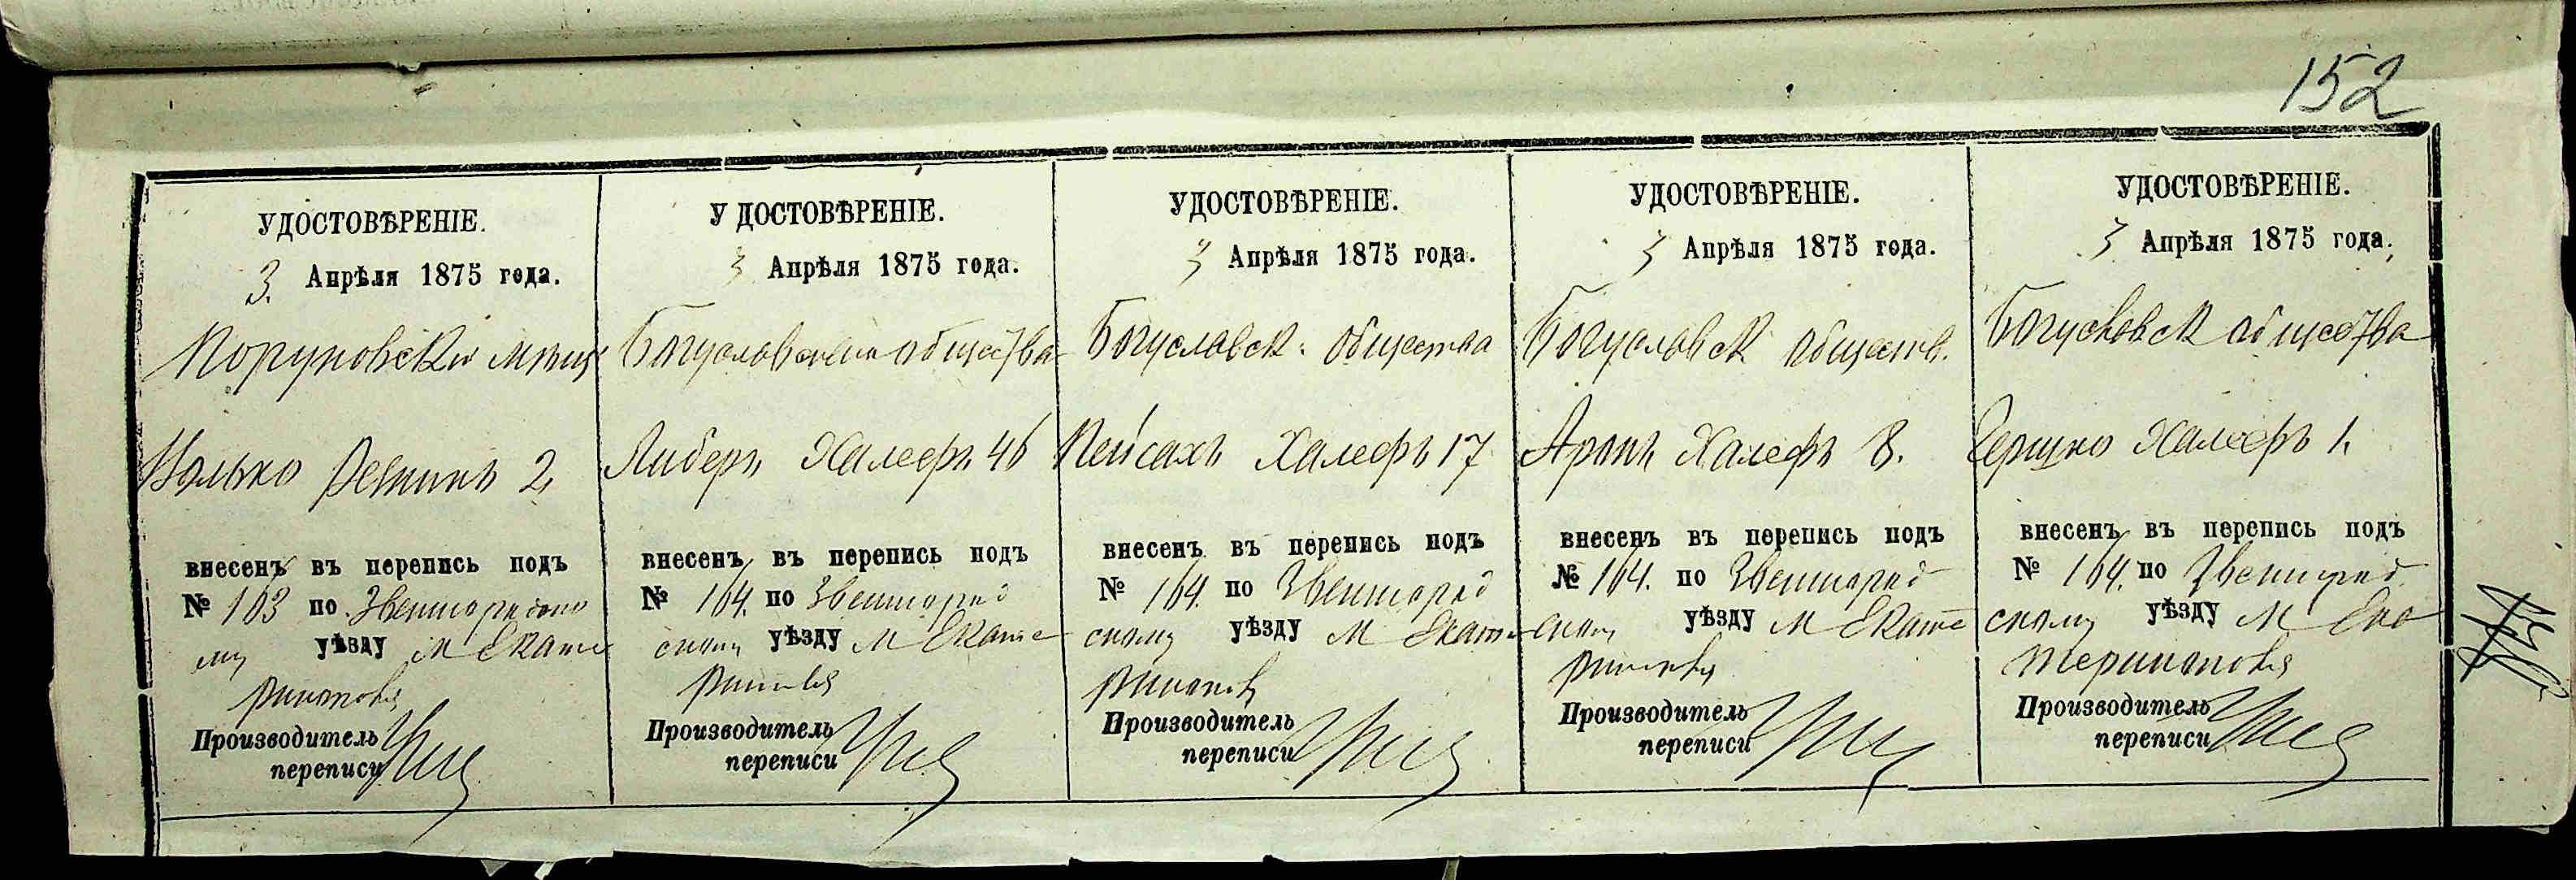 152
УДОСТОВѢРЕНІЕ.
3. Апрѣля 1875 года.
мѣщ
Ицько 2,
внесенъ въ перепись подъ
№ 163 по Звенигородско
му уѣзду м Екате
ринополѣ
Производитель
переписи
У ДОСТОВѢРЕНІЕ.
3 Апрѣля 1875 года.
Богуславскаго общества
Либеръ Халефъ 46
внесенъ въ перепись подъ
№ 164. по Звенигород
скому уѣзду м Екате
Производитель
переписи
УДОСТОВѢРЕНІЕ.
3 Апрѣля 1875 года.
Богуславск: общества
Пейсахъ Халефъ 17
внесенъ въ перепись подъ
№ 164. по Звенигород
скому уѣзду м Екате
Производитель
переписи
УДОСТОВѢРЕНІЕ.
3 Апрѣля 1875 года.
Богуславск обществ.
Аронъ Халефъ 8.
внесенъ въ перепись подъ
№ 164. по Звенигород
скому уѣзду м Екате
Производитель
переписи
УДОСТОВѢРЕНІЕ.
3 Апрѣля 1875 года.
Богуславск общества
Гершко Халефъ 1.
внесенъ въ перепись подъ
№ 164. по Звенигород
скому уѣзду м Ека
теринополѣ
Производитель
переписи